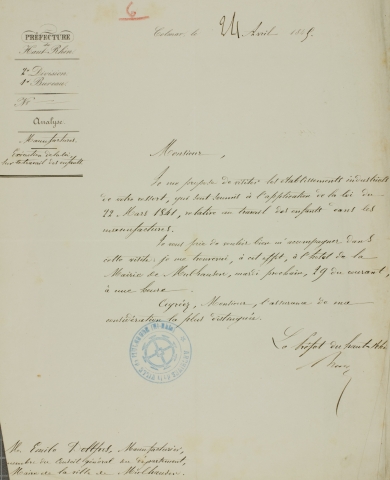 6
PRÉFECTURE
du
Haut-Rhin.
2e Division
1er Bureau
No
Analyse.
Manufactures.
Exécution de la loi
sur le travail des enfants
Colmar, le 24 Avril 184
Monsieur,
Je me propose de visiter les établissements industriels
de votre ressort, qui sont soumis à l'application de la loi du
22 Mars 1841, relative au travail des enfants dans les
manufactures.
Je vous prie de vouloir bien m'accompagner dans
cette visite; je me trouverai, à cet effet, à l'hôtel de la
Mairie de Mulhouse, mardi prochain, 29 du courant,
à une heure.
Agréez, Monsieur, l'assurance de ma
considération la plus distinguée.
Le Préfet du haut-Rhin
Mr Emile Dollfus, Manufacturier,
membre du Conseil Général du département,
Maire de la ville de Mulhouse.